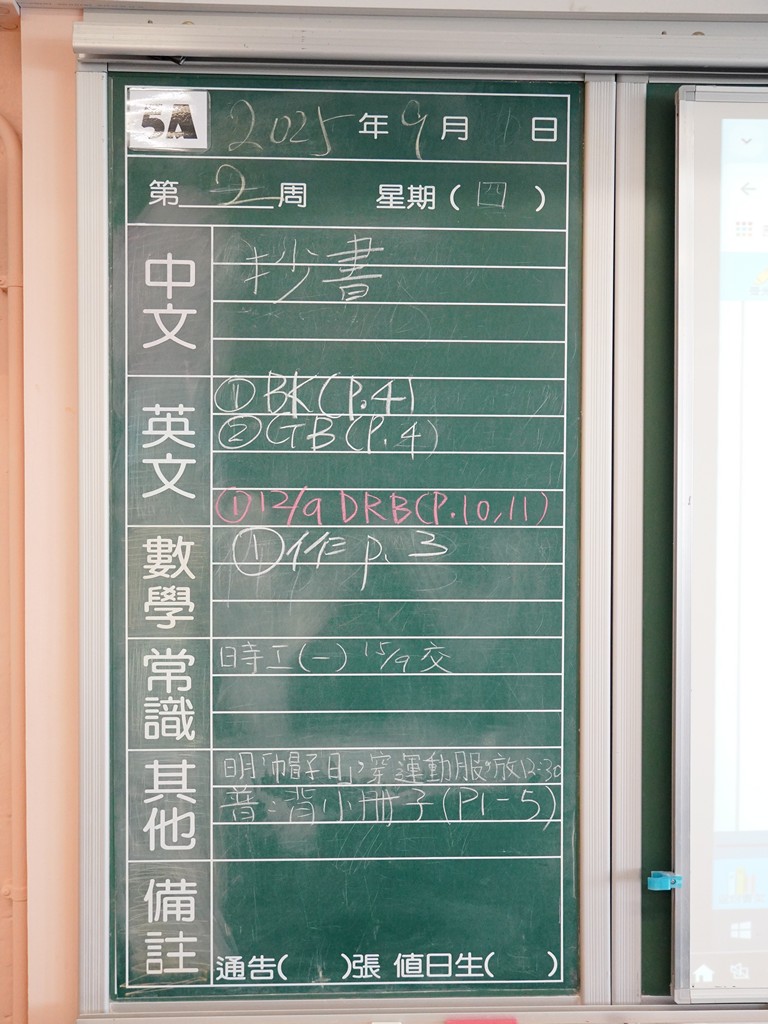 5A 2025年9月 日
第2周 星期(四)
中文
抄書
英文
①BK(P.4)
②GB(P.4)
①12/9 DRB(P.10,11)
數學
①作 p. 3
常識
時工(一) 15/9交
其他
明「帽子日」,穿運動服,放12:30
普:背小冊子(P1-5)
備註
通告( )張 值日生( )